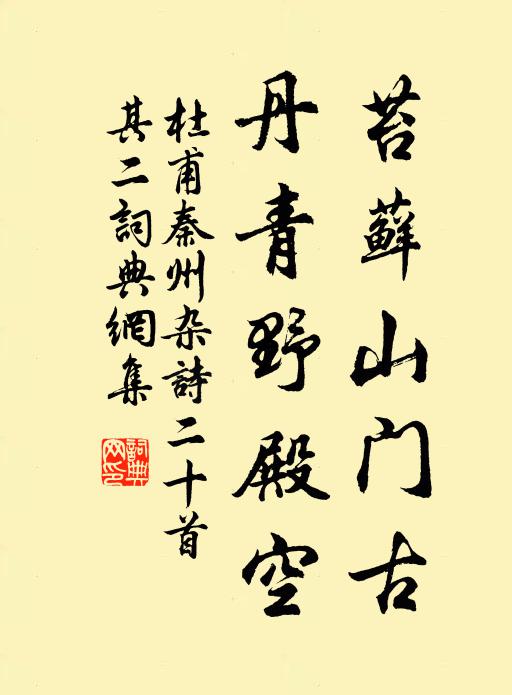 苔蘚山门古
丹青野殿空
杜甫秦州杂詩二十首
其二詞典網集
詞典网印